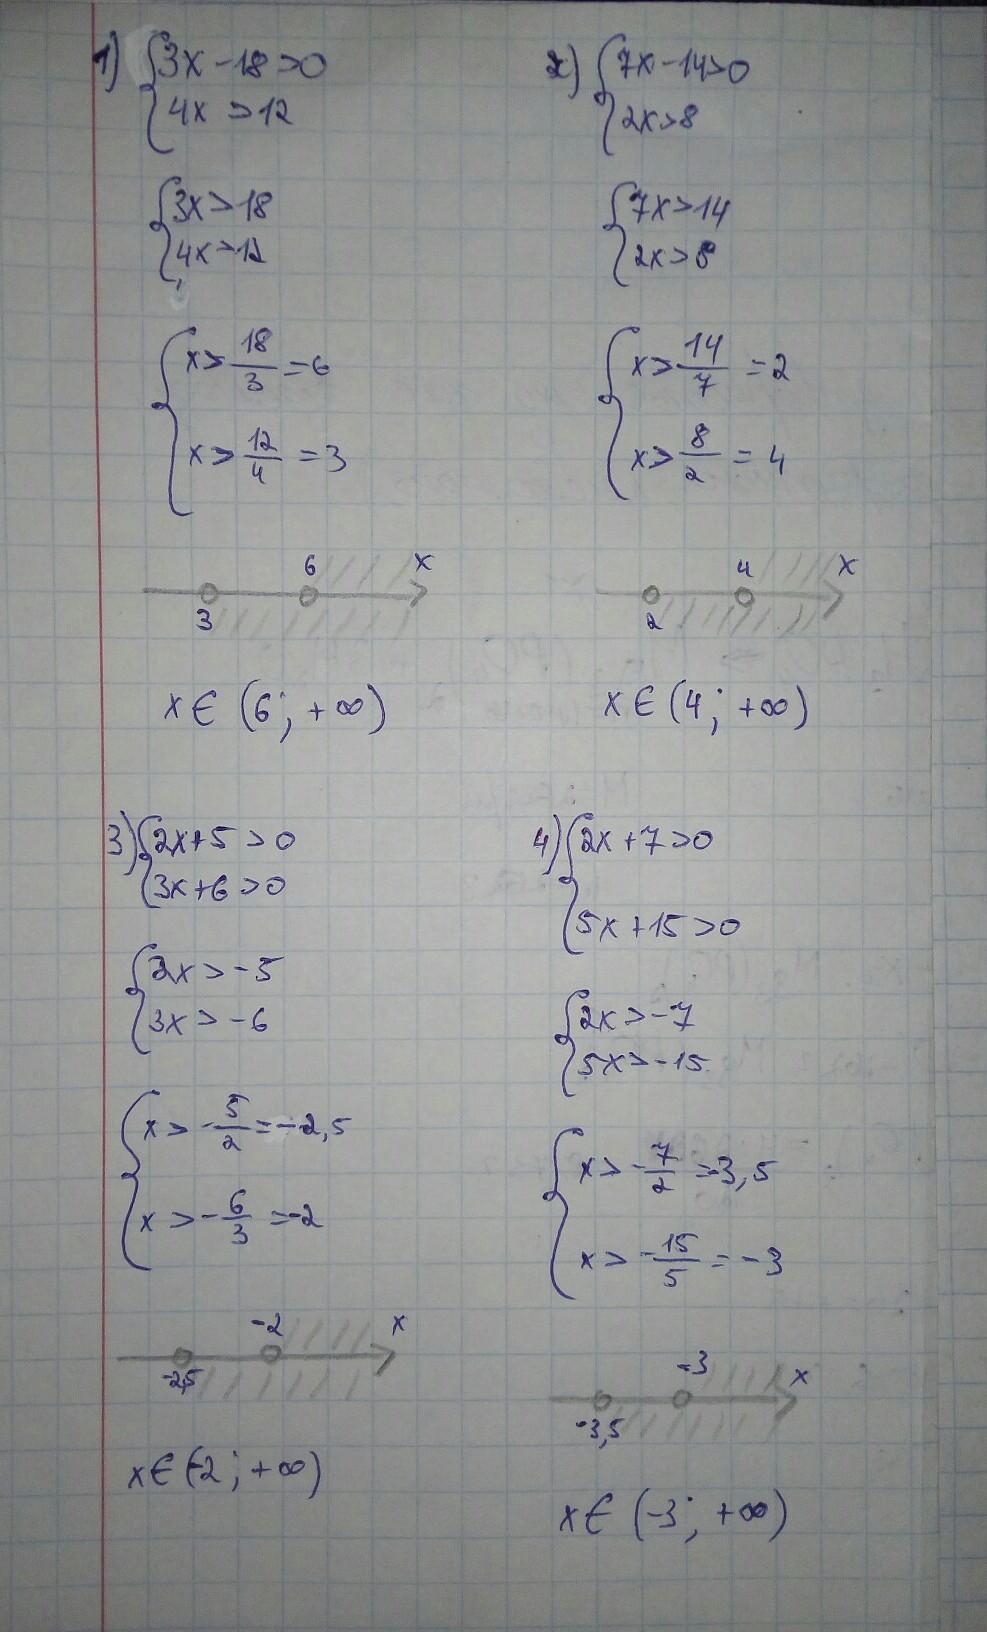 1) {3x - 18 > 0
4x > 12
{3x > 18
4x > 12
{x > 18/3 = 6
x > 12/4 = 3
6 x
3
x ∈ (6; +∞)
2) {7x - 14 > 0
2x > 8
{7x > 14
2x > 8
{x > 14/7 = 2
x > 8/2 = 4
4 x
2
x ∈ (4; +∞)
3) {2x + 5 > 0
3x + 6 > 0
{2x > -5
3x > -6
{x > -5/2 = -2,5
x > -6/3 = -2
-2 x
-2,5
x ∈ (-2; +∞)
4) {2x + 7 > 0
5x + 15 > 0
{2x > -7
5x > -15
{x > -7/2 = -3,5
x > -15/5 = -3
-3 x
-3,5
x ∈ (-3; +∞)